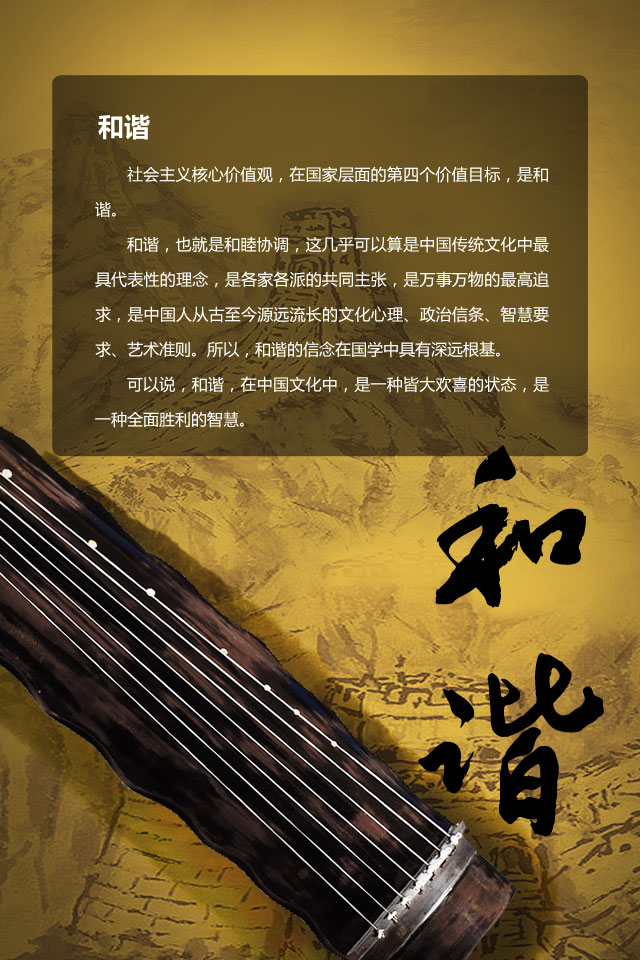 和谐
社会主义核心价值观，在国家层面的第四个价值目标，是和
谐。
和谐，也就是和睦协调，这几乎可以算是中国传统文化中最
具代表性的理念，是各家各派的共同主张，是万事万物的最高追
求，是中国人从古至今源远流长的文化心理、政治信条、智慧要
求、艺术准则。所以，和谐的信念在国学中具有深远根基。
可以说，和谐，在中国文化中，是一种皆大欢喜的状态，是
一种全面胜利的智慧。
和
谐